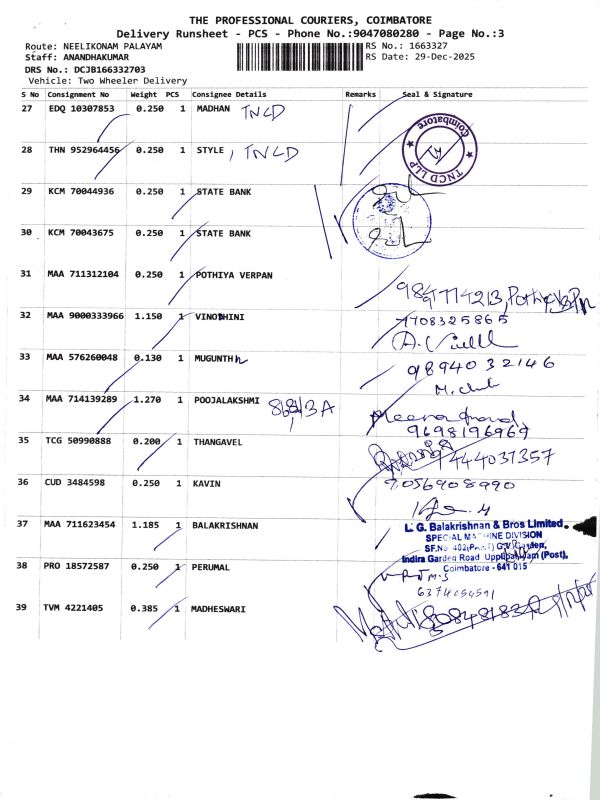 THE PROFESSIONAL COURIERS, COIMBATORE
Delivery Runsheet - PCS - Phone No.:9047080280 - Page No.:3
Route: NEELIKONAM PALAYAM RS No.: 1663327
Staff: ANANDHAKUMAR RS Date: 29-Dec-2025
DRS No.: DCJB166332703
Vehicle: Two Wheeler Delivery
S No Consignment No Weight PCS Consignee Details Remarks Seal & Signature
27 EDQ 10307853 0.250 1 MADHAN TNCD
Coimbatore
TNCD LLP
28 THN 952964456 0.250 1 STYLE, TNCD
29 KCM 70044936 0.250 1 STATE BANK
30 KCM 70043675 0.250 1 STATE BANK
31 MAA 711312104 0.250 1 POTHIYA VERPAN
32 MAA 9000333966 1.150 1 VINOTHINI 7708325865
33 MAA 576260048 0.130 1 MUGUNTH 9894032146
34 MAA 714139289 1.270 1 POOJALAKSHMI
9698196969
35 TCG 50990888 0.200 1 THANGAVEL 9444037357
36 CUD 3484598 0.250 1 KAVIN 9056908990
37 MAA 711623454 1.185 1 BALAKRISHNAN
L. G. Balakrishnan & Bros Limited.
SPECIAL MACHINE DIVISION
Indira Garden Road, Uppilipalayam (Post),
Coimbatore - 641 015
38 PRO 18572587 0.250 1 PERUMAL
39 TVM 4221405 0.385 1 MADHESWARI